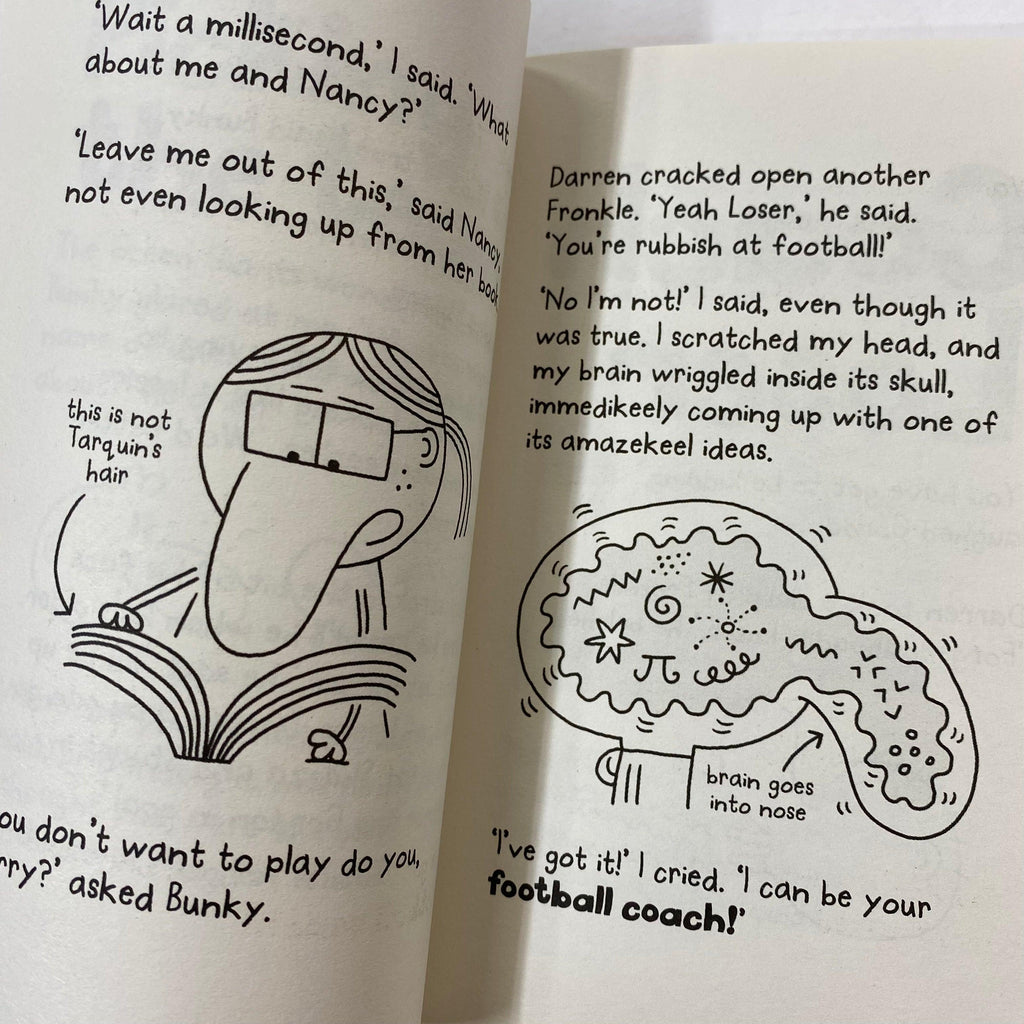 'Wait a millisecond,' I said. 'What
about me and Nancy?'
'Leave me out of this,' said Nancy,
not even looking up from her book
this is not
Tarquin's
hair
ou don't want to play do you,
rry?' asked Bunky.
Darren cracked open another
Fronkle. 'Yeah Loser,' he said.
'You're rubbish at football!'
'No I'm not!' I said, even though it
was true. I scratched my head, and
my brain wriggled inside its skull,
immedikeely coming up with one of
its amazekeel ideas.
π
brain goes
into nose
'I've got it!' I cried. 'I can be your
football coach!'